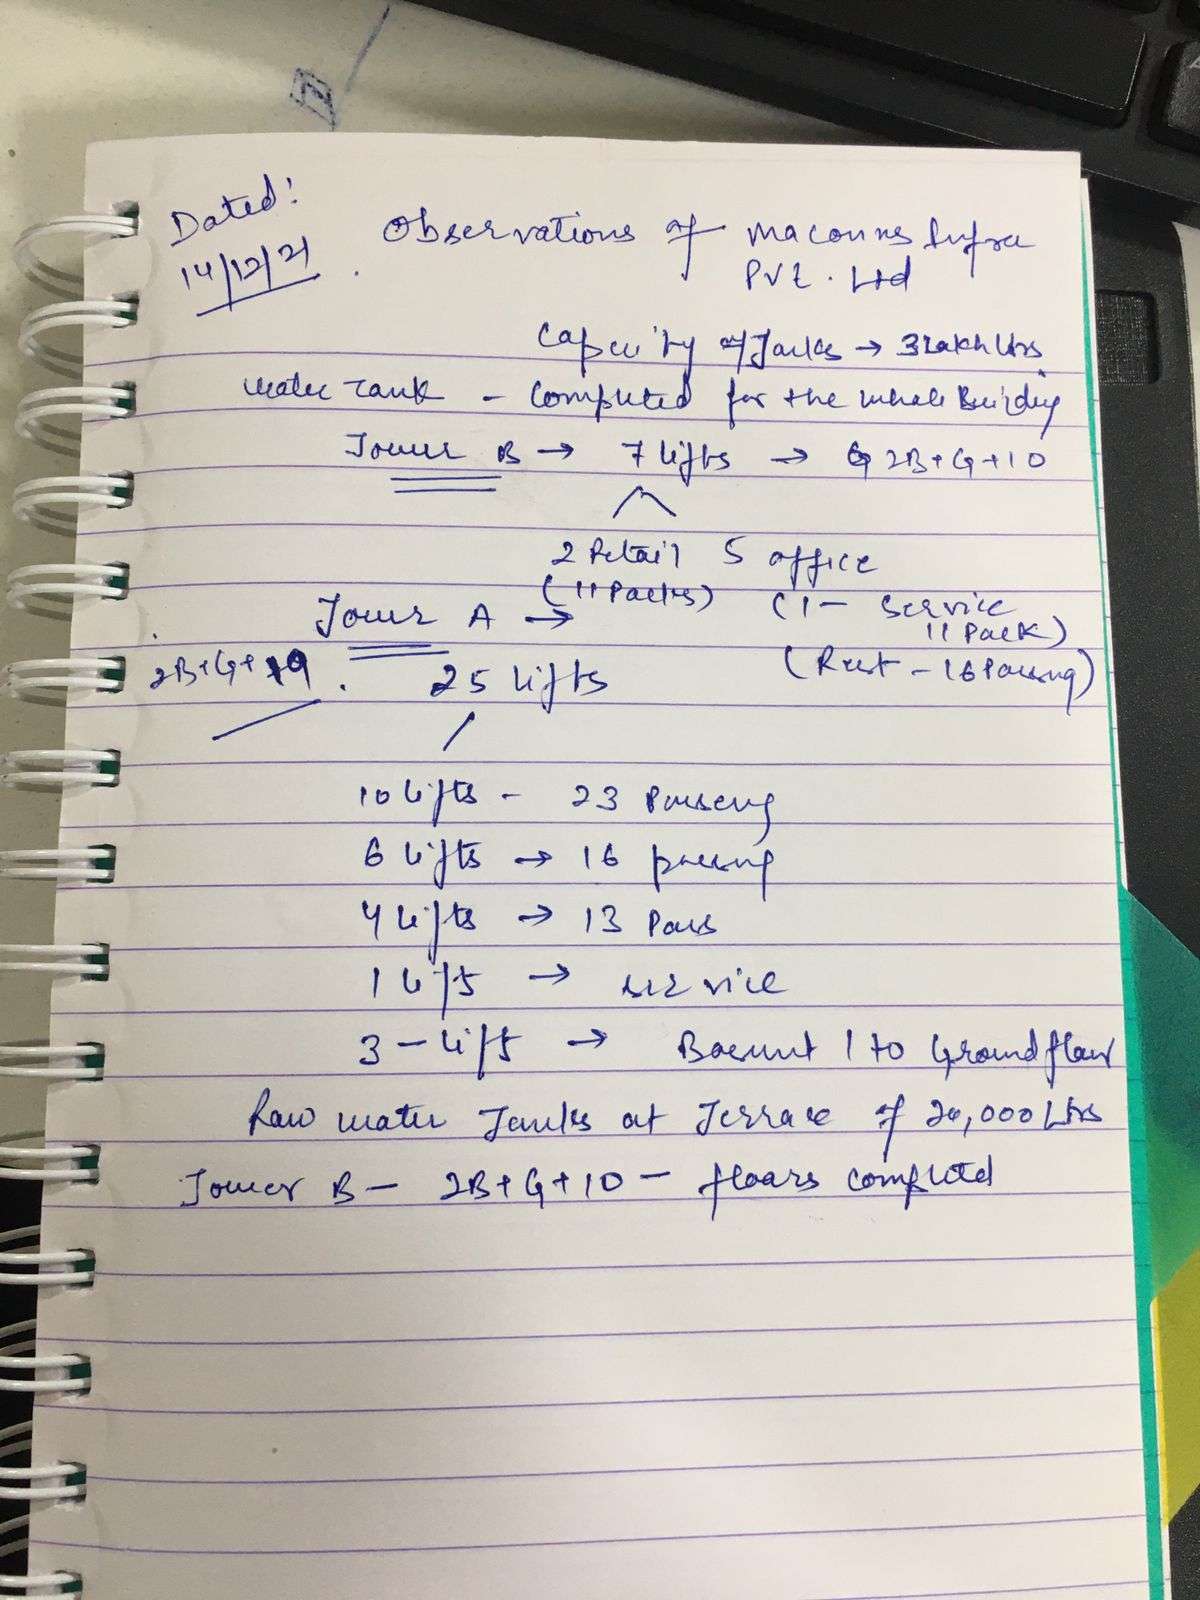 Dated:
14/12/21
Observations of Maconns Infra
Pvt. Ltd
Capacity of Tanks → 3 Lakh Ltrs
Water Tank - Completed for the whole Building
Tower B → 7 lifts → 2B+G+10
2 Retail 5 office
(11 Packs) (1 - Service
11 Pack)
Tower A →
(Rest - 16 Passeng)
2B+G+19. 25 lifts
10 lifts - 23 Passeng
6 lifts → 16 passng
4 lifts → 13 Pass
1 lift → service
3 - lift → Basemnt 1 to Ground floor
Raw water Tanks at Terrace of 20,000 Ltrs
Tower B - 2B+G+10 - floors completed